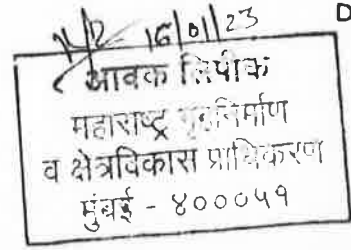 16/01/23
D
आवक लिपीक
महाराष्ट्र गृहनिर्माण
व क्षेत्रविकास प्राधिकरण
मुंबई - ४०००५१